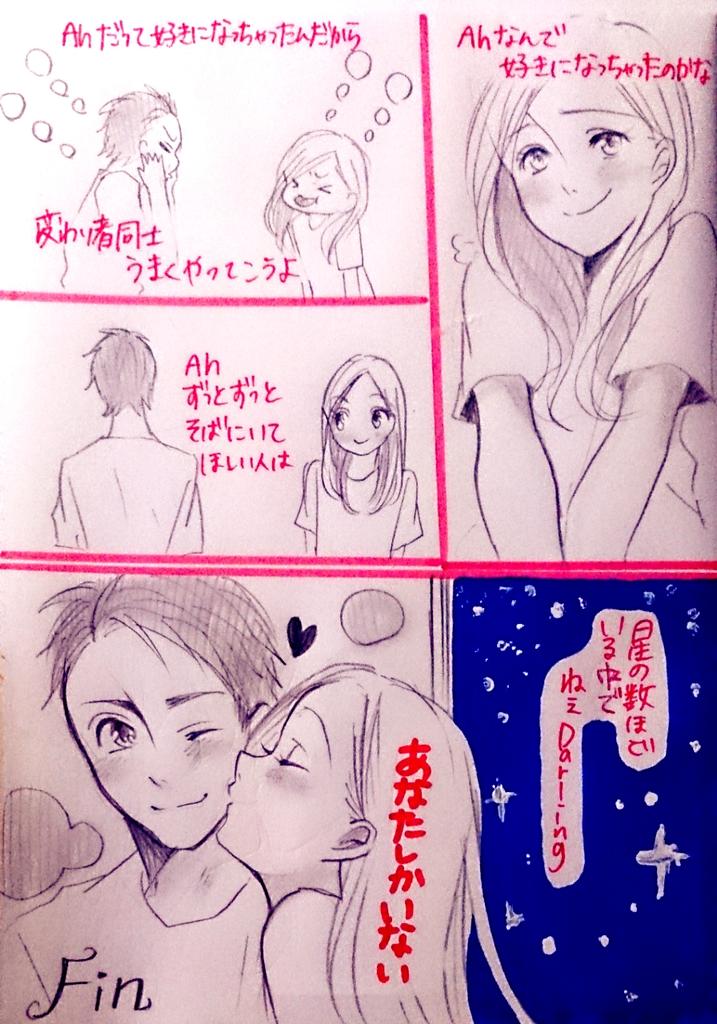 Ahなんで
好きになっちゃったのかな
Ahだって好きになっちゃったんだから
変わり者同士
うまくやってこうよ
Ah
ずっとずっと
そばにいて
ほしい人は
星の数ほど
いる中で
ねぇDarling
あなたしかいない
Fin